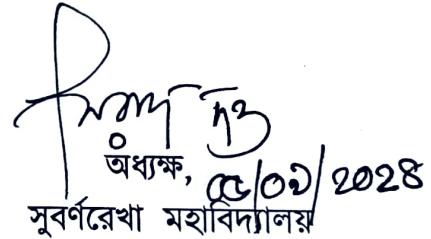 অধ্যক্ষ, ০৫/০৯/২০২৪
সুবর্ণরেখা মহাবিদ্যালয়